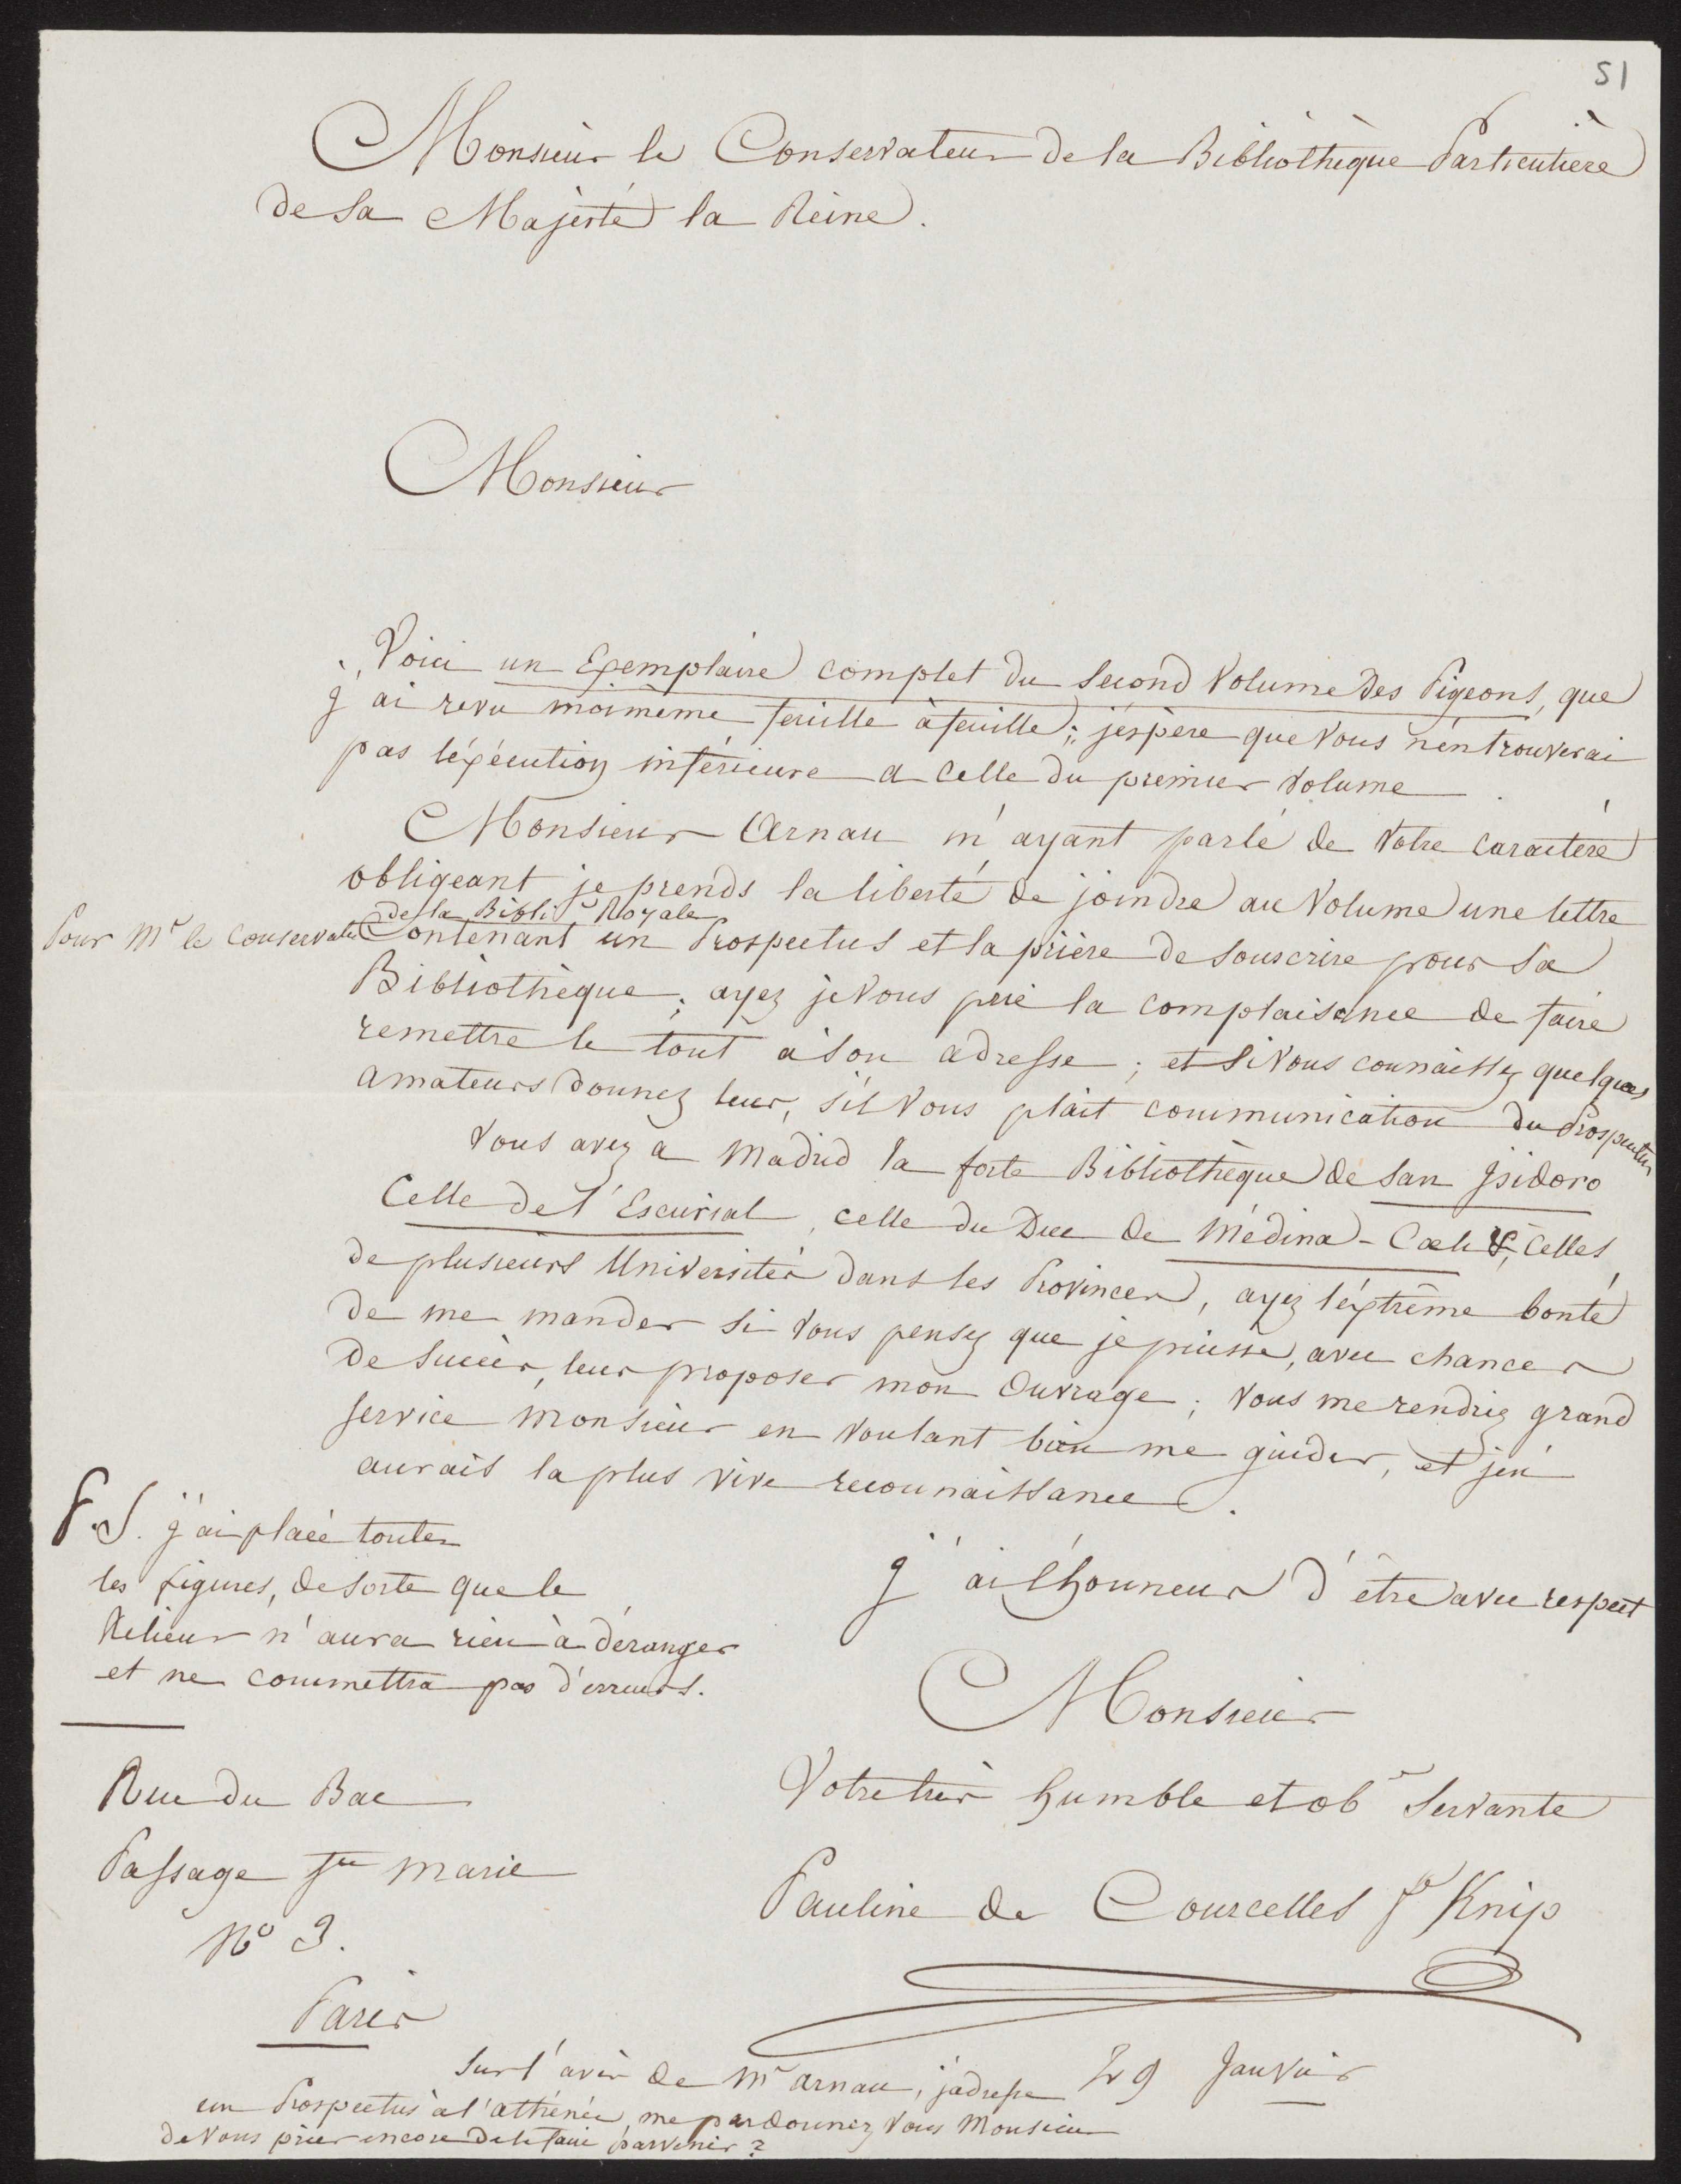 51
Monsieur le Conservateur de la Bibliothèque Particulière
de Sa Majesté la Reine.
Monsieur
Voici un Exemplaire complet du Second Volume des Pigeons, que
j'ai revu moimême feuille à feuille; j'éspère que Vous n'entrouverai
pas l'éxécution inférieure a Celle du premier Volume.
Monsieur Arnau m'ayant parlé de Votre Caractère
obligeant je prends la liberté de joindre au Volume une lettre
Pour Mr le Conservateur de la Biblie Royale
Contenant un Prospectus et la prière de Souscrire pour Sa
Bibliothèque; ayez je Vous prie la Complaisance de faire
remettre le tout à Son adresse; et Si Vous connaissez quelques
amateurs donnez leur, s'il Vous plait communication du Prospectus
Vous avez a Madrid la forte Bibliothèque de San Isidoro
Celle de l'Escurial, celle du Duc de Médina-Cœli &, Celles
de plusieurs Universités dans les Provinces, ayez l'éxtrème bonté
de me mander si Vous pensez que je puisse, avec chances
de Succès, leur proposer mon Ouvrage; Vous me rendriez grand
Service Monsieur en Voulant bien me guider, et j'en
aurais la plus vive reconnaissance.
j'ai l'honneur d'être avec respect
Monsieur
Votre très humble et obte Servante
Pauline de Courcelles fe Knip
29 Janvier
P.S. j'ai placé toutes
les figures, de Sorte que le
Relieur n'aura rien à déranger
et ne commettra pas d'erreurs.
Rue du Bac
Passage Ste Marie
No 3.
Paris
Sur l'avis de Mr Arnau, j'adresse
un Prospectus à l'athénée, me pardonnez Vous Monsieur
de Vous prier encore de le faire parvenir?